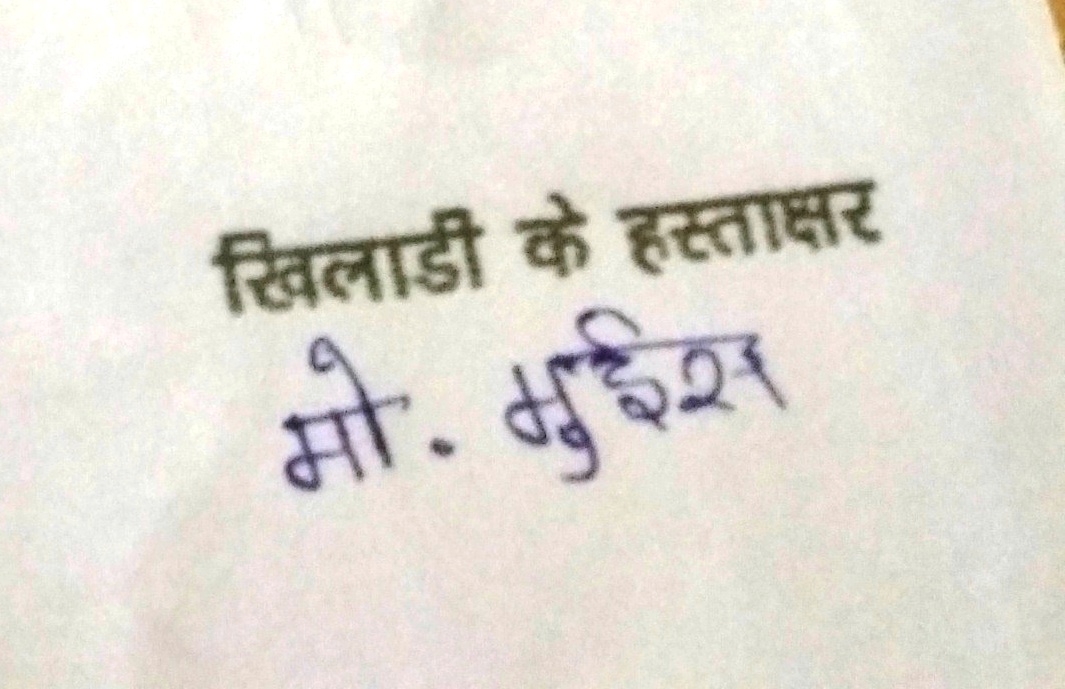 खिलाडी के हस्ताक्षर
मो. मुईस